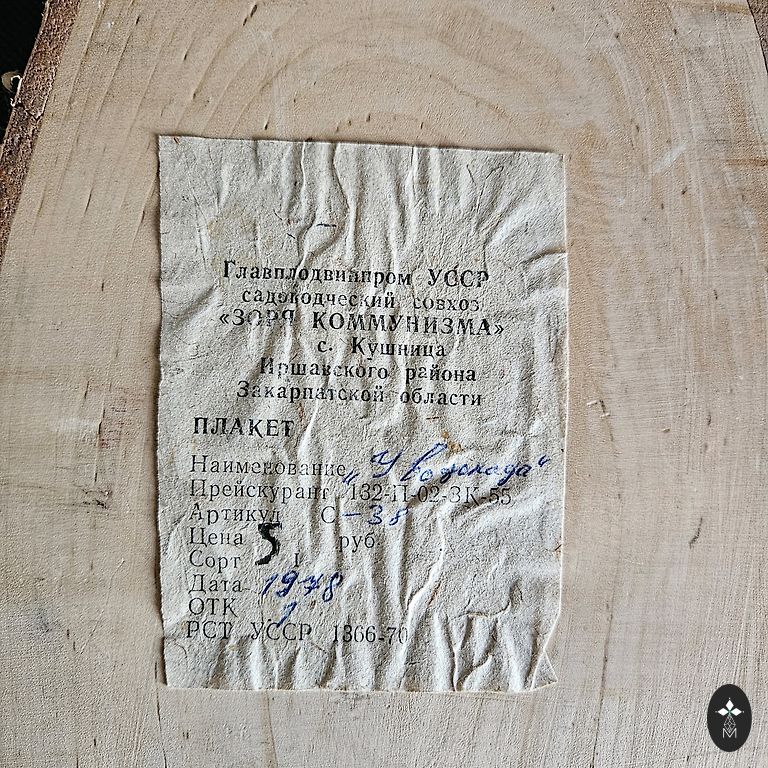 Главплодвинпром УССР
садоводческий совхоз
«ЗОРЯ КОММУНИЗМА»
с. Кушница
Иршавского района
Закарпатской области
ПЛАКЕТ
Наименование „У водопада“
Прейскурант 132-П-02-ЗК-55
Артикул С-38
Цена 5 руб
Сорт I
Дата 1978
ОТК 1
РСТ УССР 1366-70